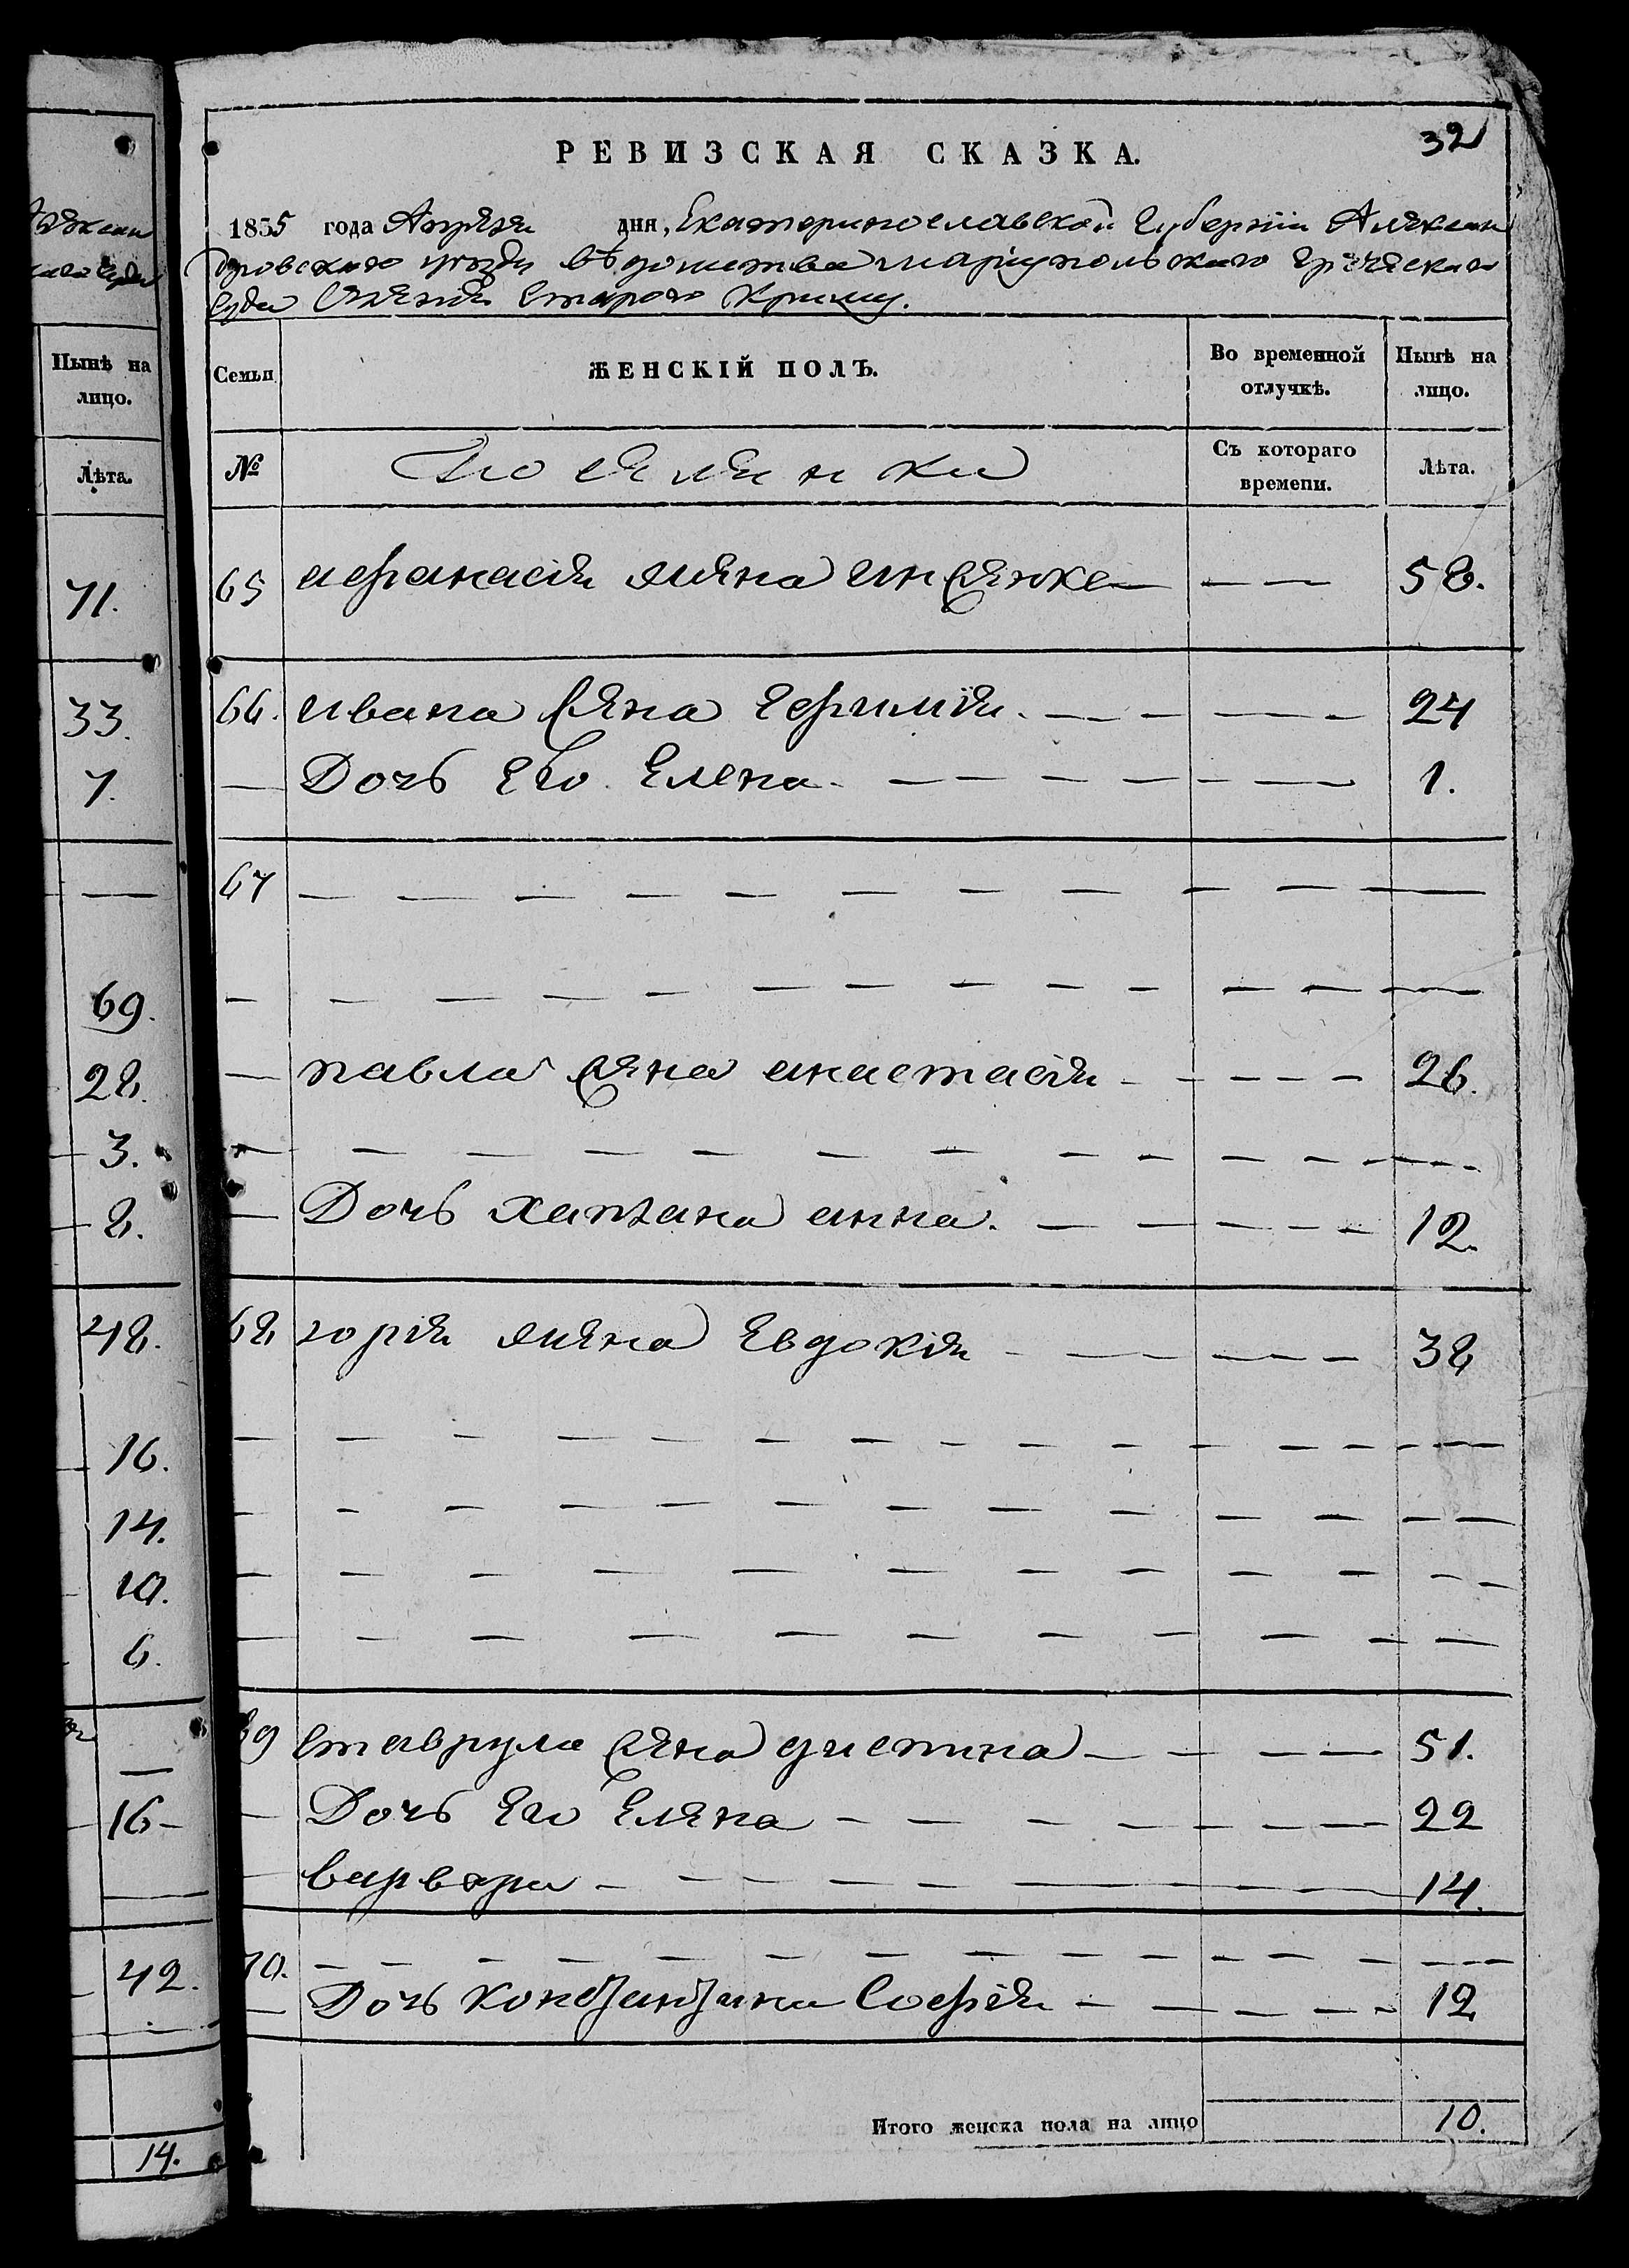 32
РЕВИЗСКАЯ СКАЗКА.
1835 года Апреля дня, Екатеринославской Губернiи Алексан
дровскаго уезда вѣдомства мариупольского греческаго
Суда Селенiя Старого Криму.
Семьи
ЖЕНСКIЙ ПОЛЪ.
Во временной отлучкѣ.
Нынѣ на лицо.
№
поселянки
Съ котораго времени.
Лѣта.
65 афанасiя жена 58.
66. ивана жена ефимiя. 24
Дочь Его Елена. 1.
67
павла жена анастасiя 26.
Дочь анна. 12.
68 юрiя жена Евдокiя 38
69 Ставрула жена 51.
Дочь Его Елена 22
варвара 14.
70.
Дочь Константина Софiя 12
Итого женска пола на лицо 10.
Нынѣ на лицо.
Лѣта.
71.
33.
7.
69.
28.
3.
8.
48.
16.
14.
10.
6.
16
42.
14.